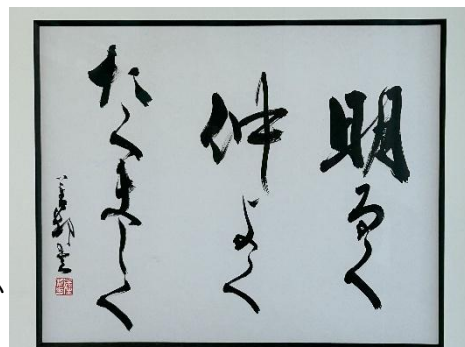 明るく
仲よく
たくましく